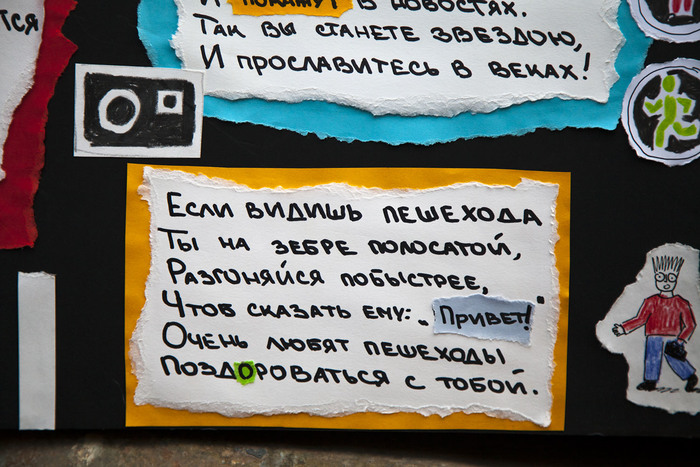 тся
И покажут в новостях.
Так вы станете звездою,
И прославитесь в веках!
Если видишь пешехода
Ты на зебре полосатой,
Разгоняйся побыстрее,
Чтоб сказать ему: „Привет!"
Очень любят пешеходы
Поздороваться с тобой.